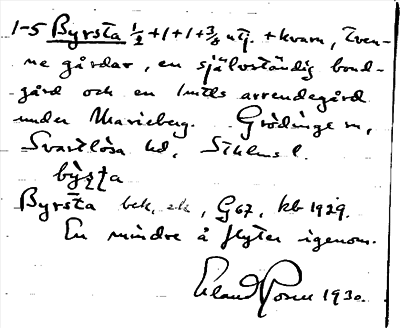 1-5 Byrsta ½+1+1+⅜ utj. + kvarn, Tven-
ne gårdar, en självständig bond-
gård och en 1 mtls arrendegård
under Marieberg. Grödinge sn,
Svartlösa hd, Sthlms l.
Byrsta bek, ek, G67, kb 1929.
En mindre å flyter igenom.
Erland Rosell 1930.